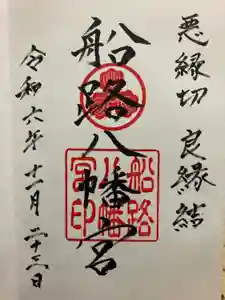 悪縁切 良縁結
船路八幡宮
船路
八幡
宮印
令和六年十一月二十三日